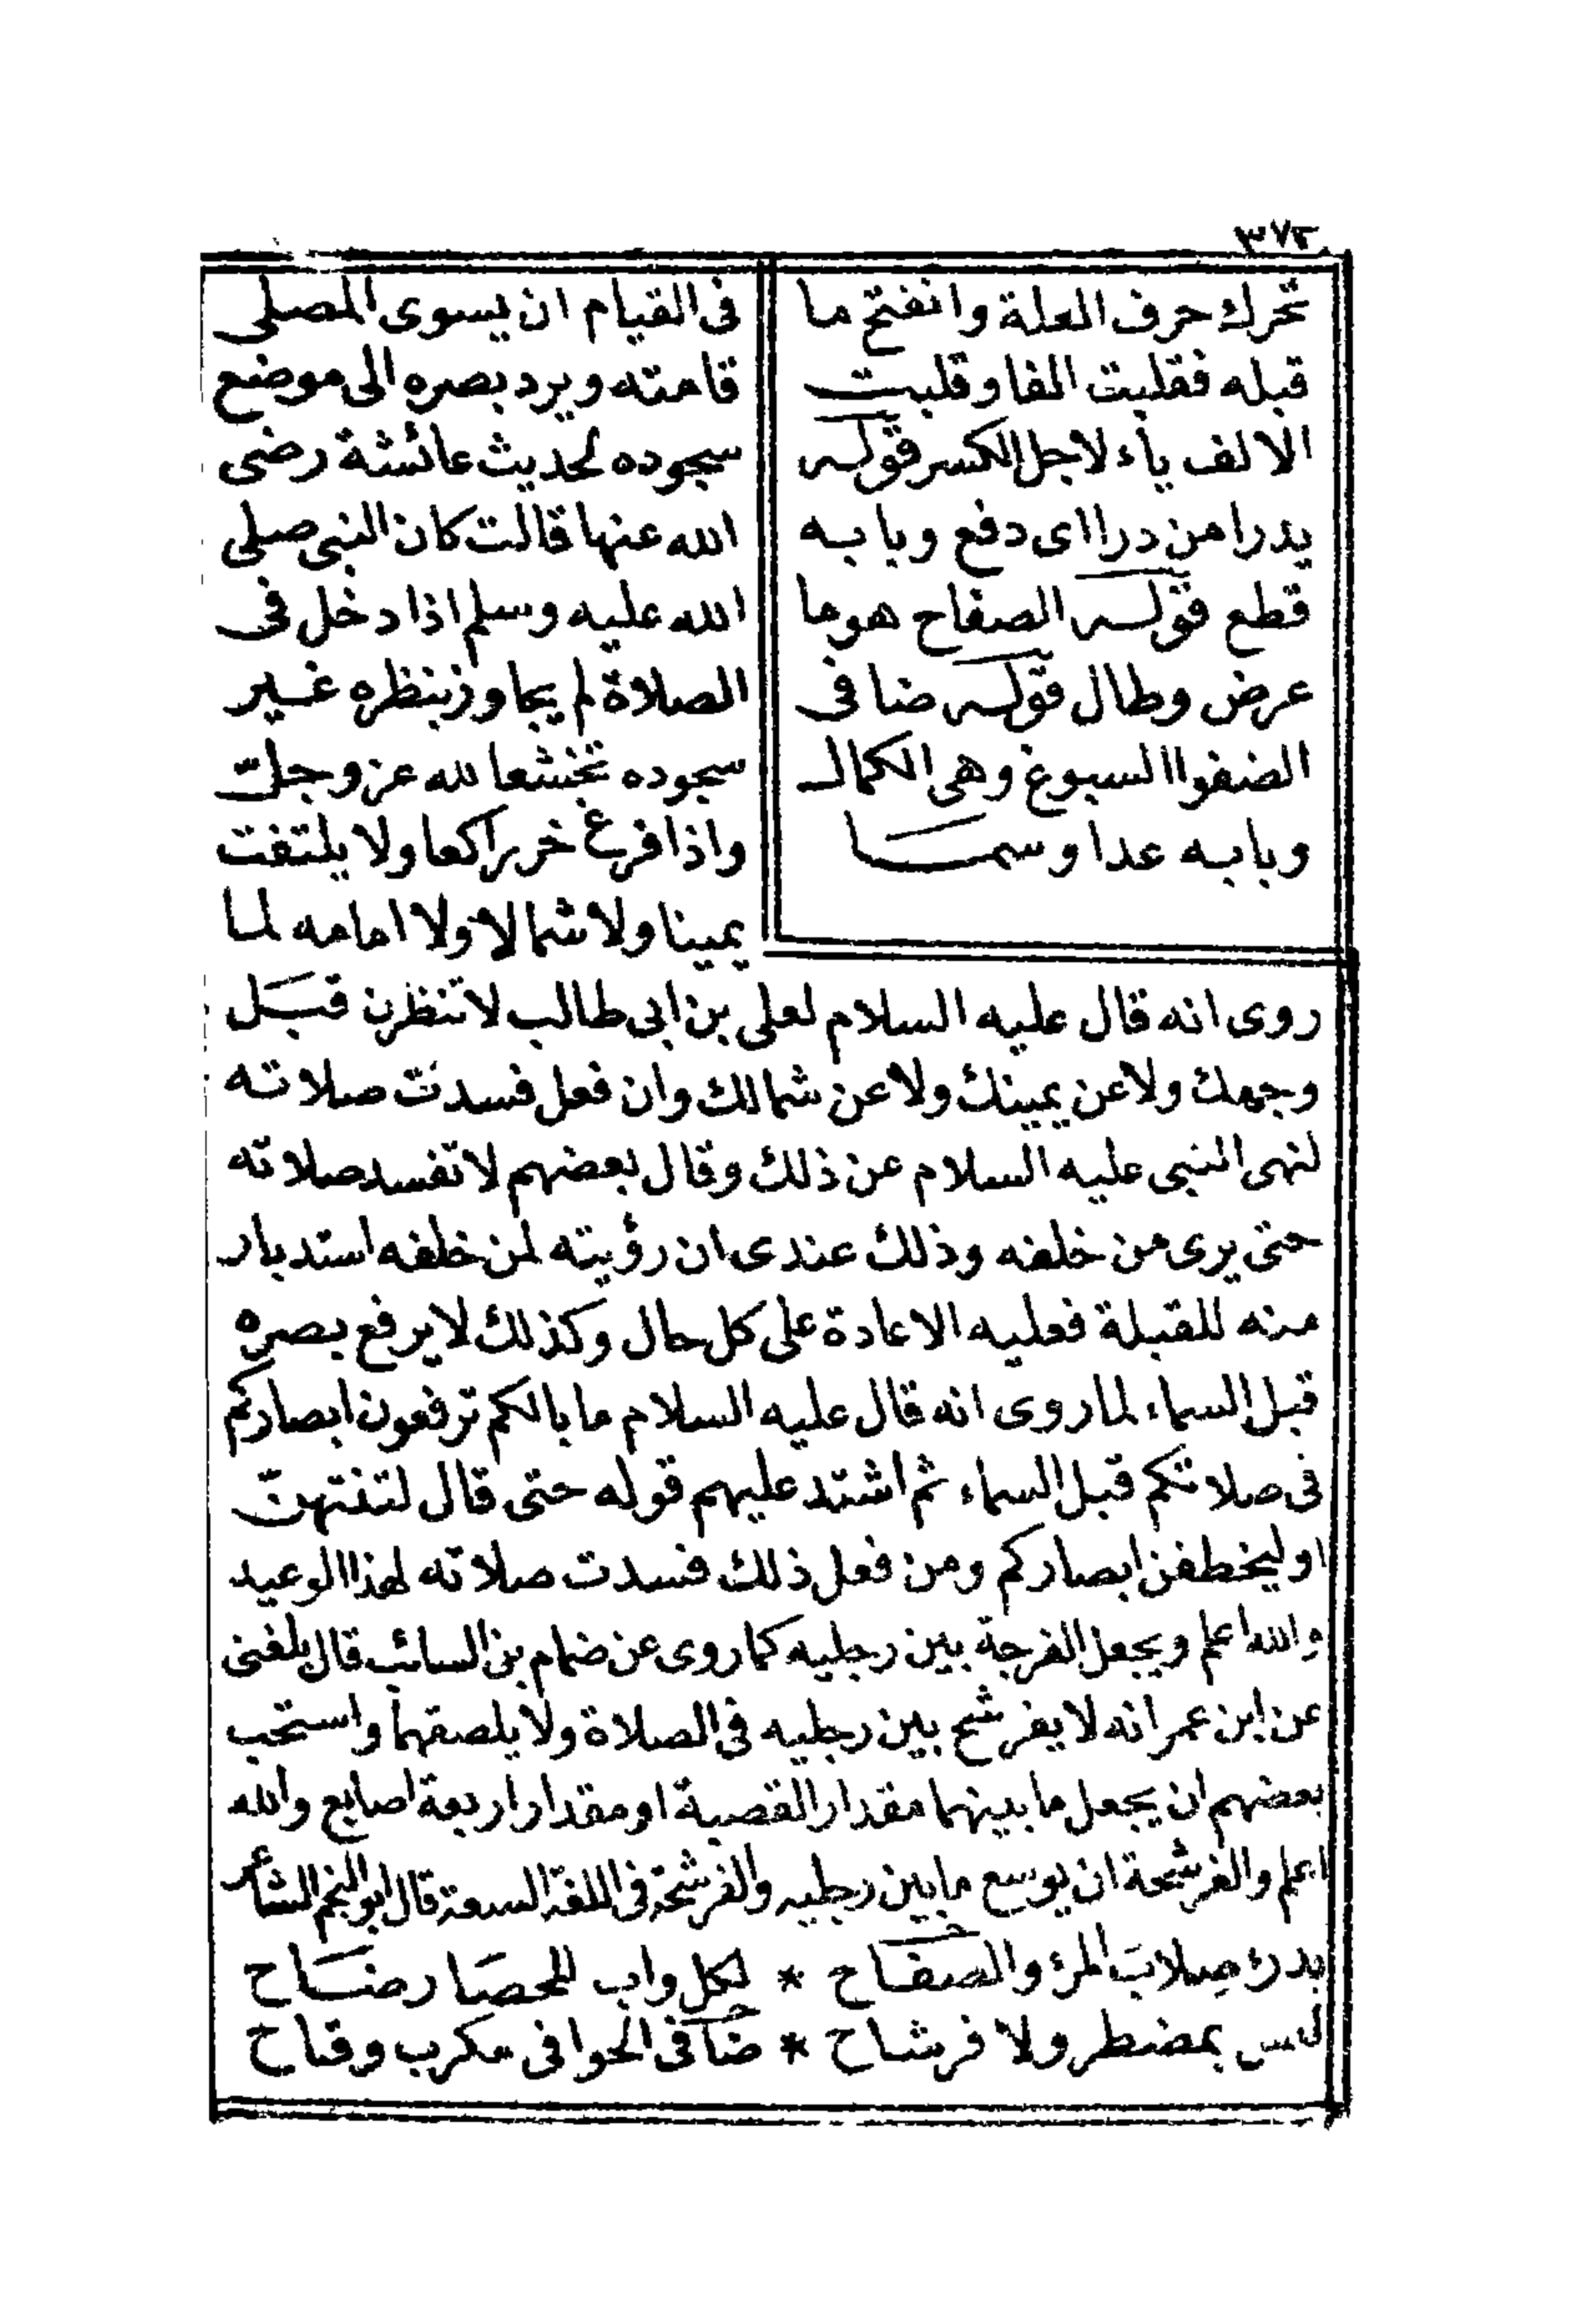 ٣٧٢
تحرك حرف العلة وانفتح ما
قبله فقلبت الفا وقلبت
الالف ياء لاجل الكسر قوله
يدرا من درا اى دفع وبابه
قطع قوله الصفاح هو ما
عرض وطال قوله ضافى
الضفوا السبوغ وهى الكمال
وبابه عدا وسما
فى القيام ان يسوى المصلى
قامته ويرد بصره الى موضع
سجوده لحديث عائشة رضى
الله عنها قالت كان النبى صلى
الله عليه وسلم اذا دخل فى
الصلاة لم يجاوز بنظره غير
سجوده تخشعا لله عز وجل
واذا فرغ خر راكعا ولا يلتفت
يمينا ولا شمالا ولا امامه لما
روى انه قال عليه السلام لعلى بن ابى طالب لا تنظرن قبل
وجهك ولا عن يمينك ولا عن شمالك وان فعل فسدت صلاته
لنهى النبى عليه السلام عن ذلك وقال بعضهم لا تفسد صلاته
حتى يرى من خلفه وذلك عندى ان رؤيته لمن خلفه استدبار
منه للقبلة فعليه الاعادة على كل حال وكذلك لا يرفع بصره
قبل السماء لما روى انه قال عليه السلام ما بالكم ترفعون ابصاركم
فى صلاتكم قبل السماء ثم اشتد عليهم قوله حتى قال لتنتهن
او ليخطفن ابصاركم ومن فعل ذلك فسدت صلاته لهذا الوعيد
والله اعلم ويجعل الفرجة بين رجليه كما روى عن ضمام بن السائب قال بلغنى
عن ابن عمر انه لا يفرشح بين رجليه فى الصلاة ولا يلصقهما واستحب
بعضهم ان يجعل ما بينهما مقدار القصبة او مقدار اربعة اصابع والله
اعلم والفرشحة ان يوسع ما بين رجليه والفرشحة فى اللغة السعة قال ابو النجم الشاعر
يدرئ صلاب المرو والصفاح * لكل واب للحصا رضاح
ليس بمضطر ولا فرشاح * ضافى الحوافى مكرب وقاح